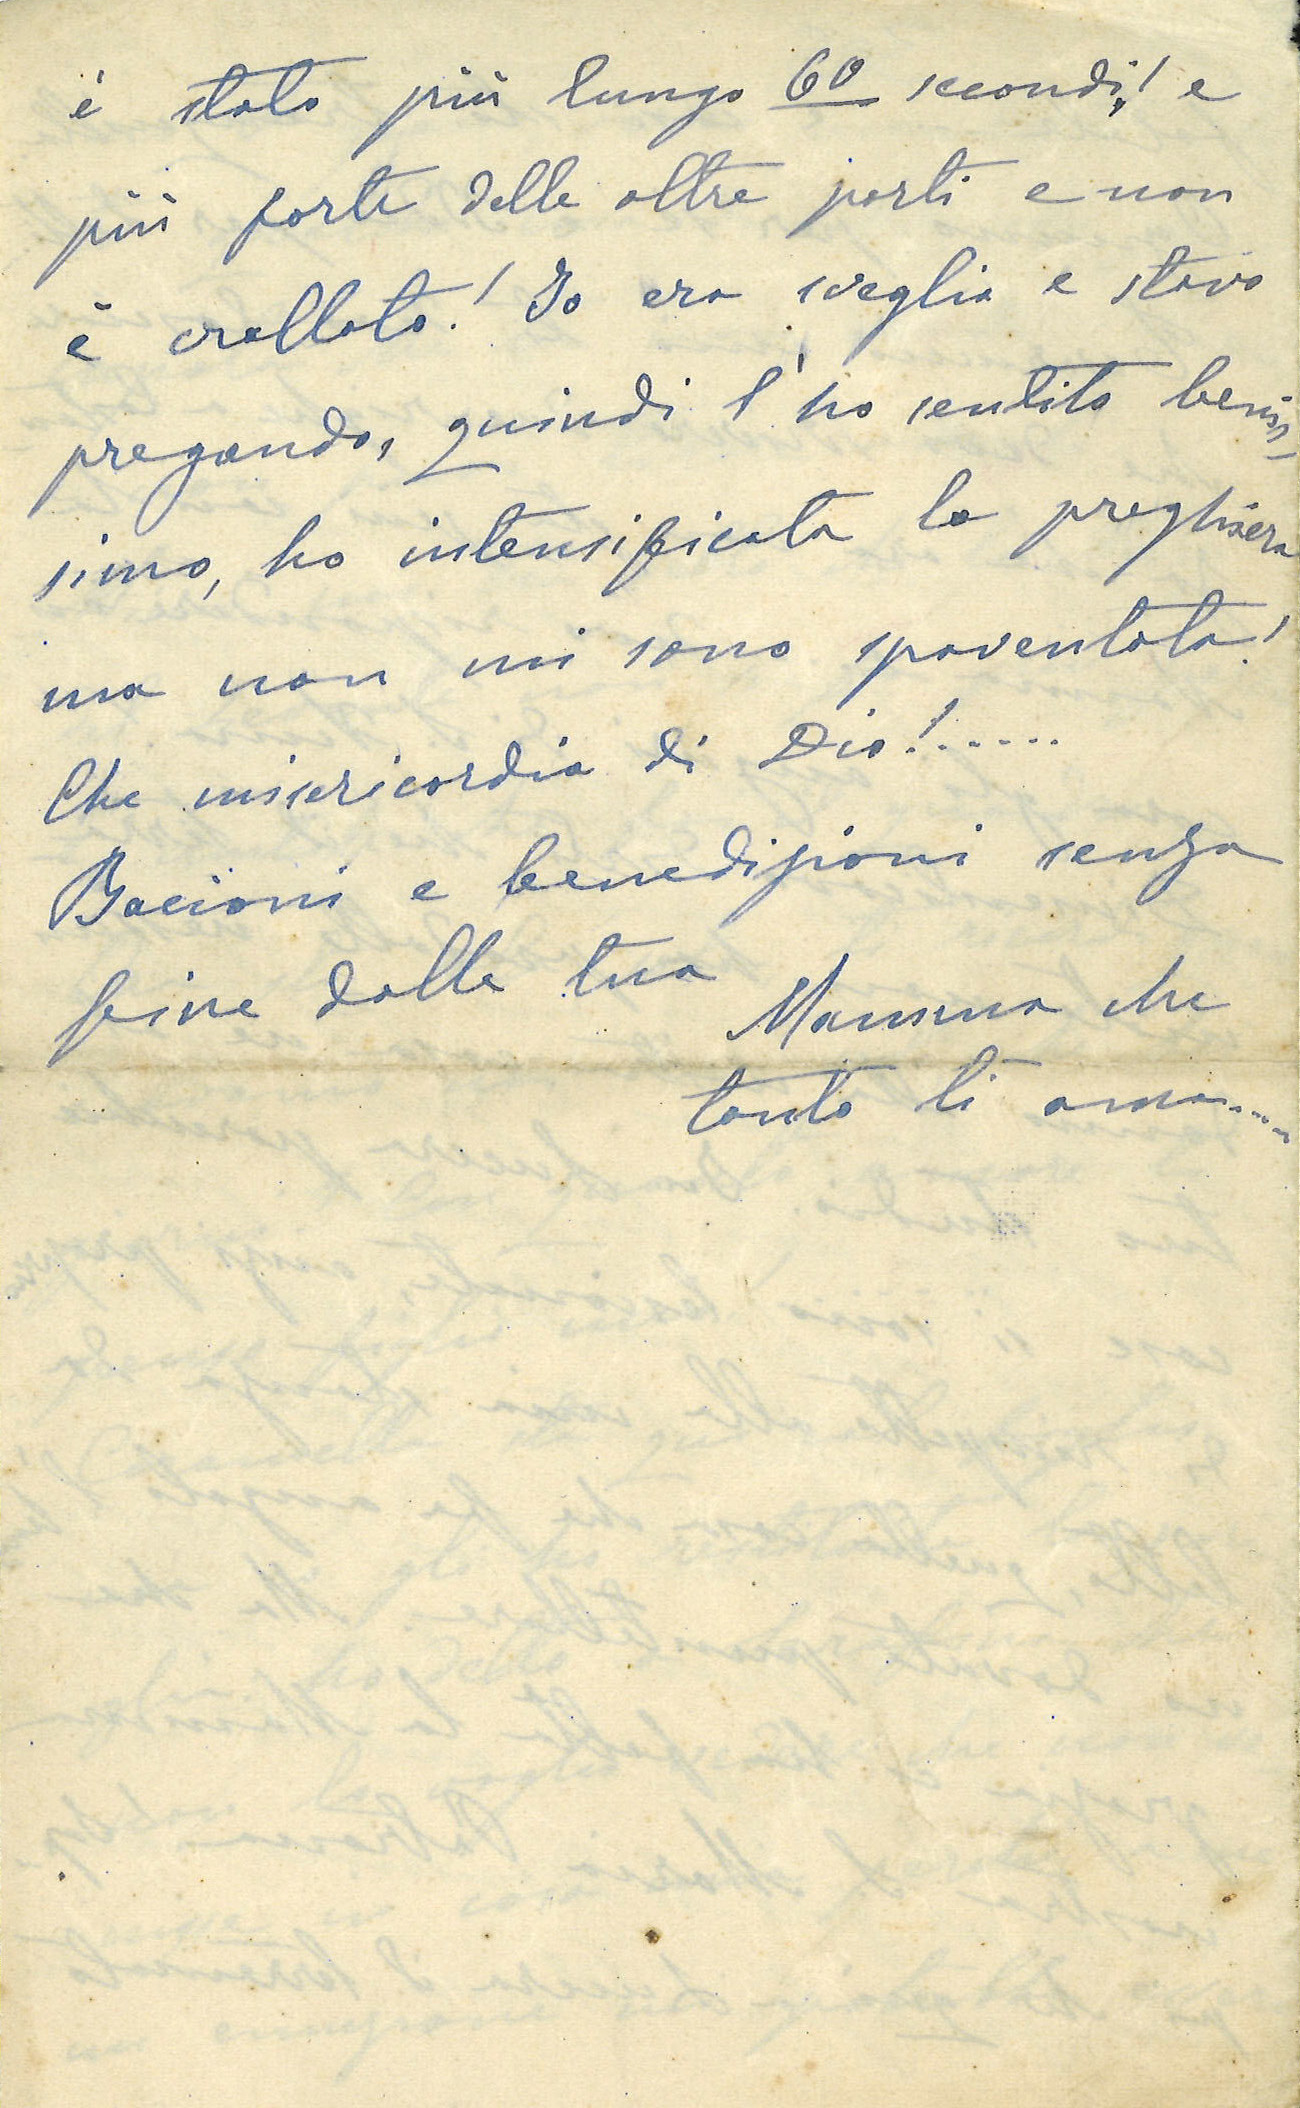 è stato più lungo 60 secondi,! e
più forte delle altre parti e non
è crollato! Io ero sveglia e stavo
pregando, quindi l'ho sentito benis-
simo, ho intensificata la preghiera
ma non mi sono spaventata!
Che misericordia di Dio!......
Bacioni e benedizioni senza
fine dalla tua Mamma che
tanto ti ama.....